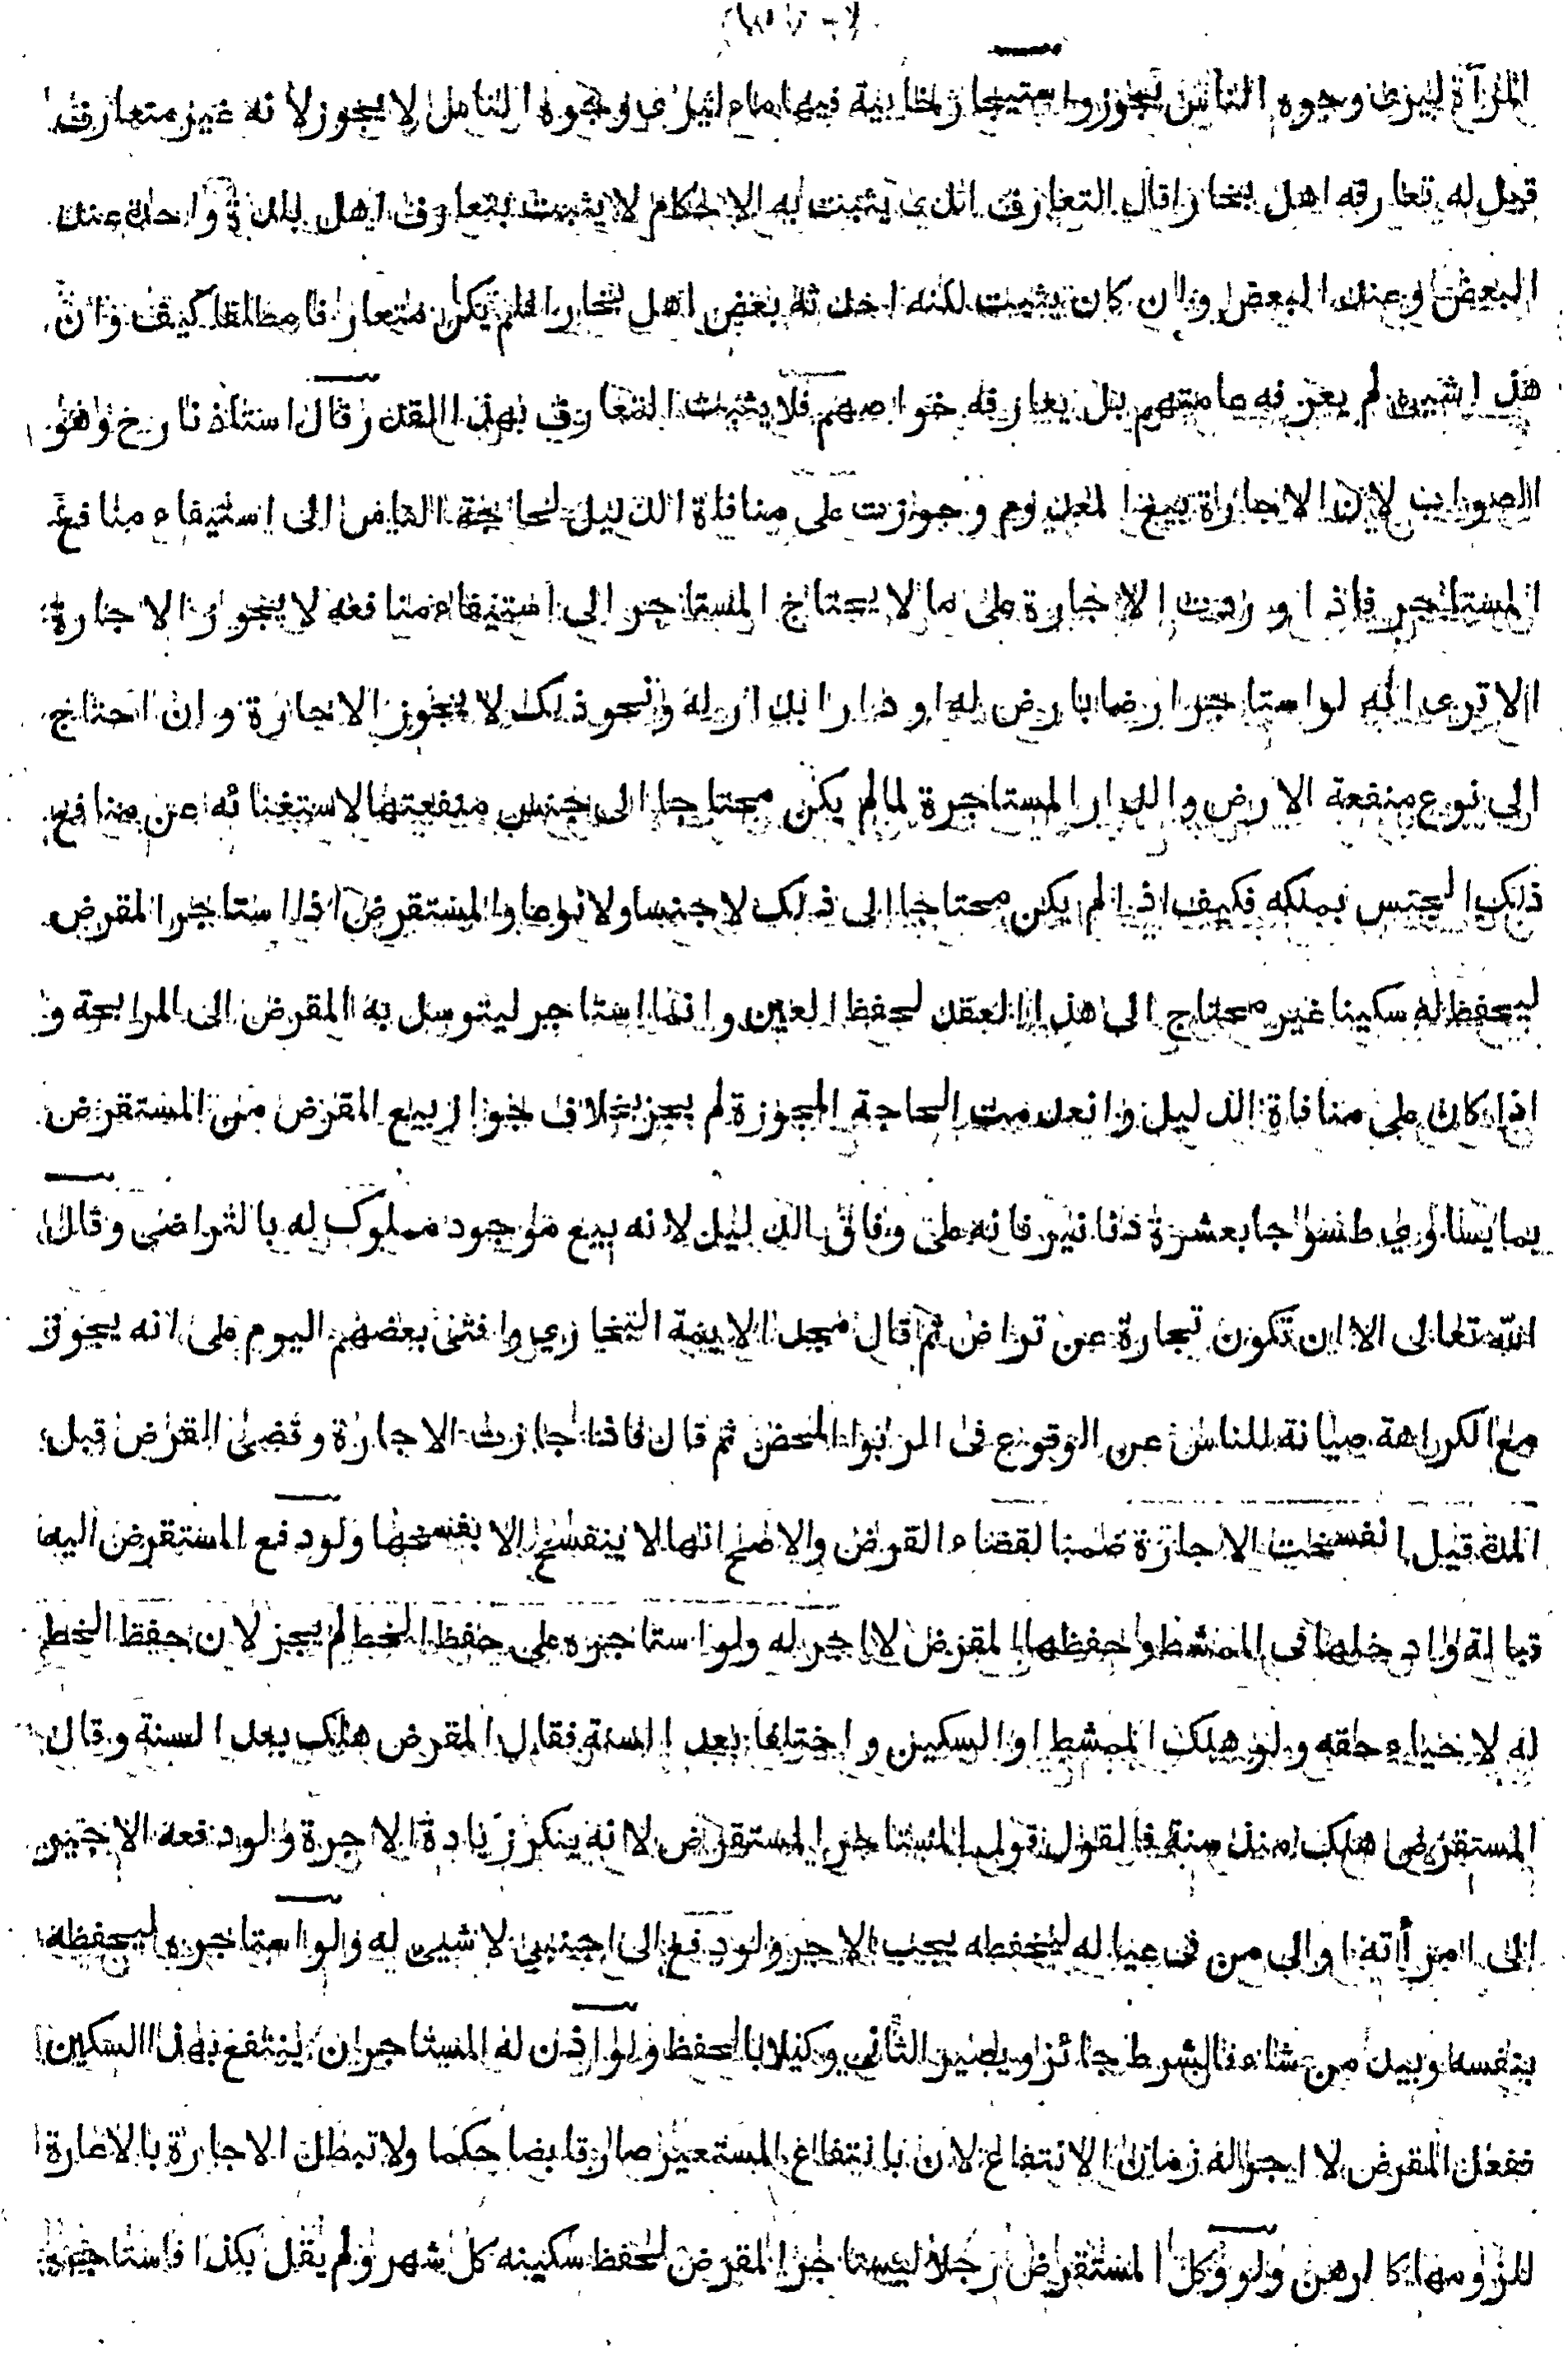 المرآة ليرى وجوه الناس يجوز واستيجار الخابية فيها ماء ليرى وجوه الناس لا يجوز لانه غير متعارف
قيل له تعارفه اهل بخارا قال التعارف الذى يثبت به الاحكام لا يثبت بتعارف اهل بلدة واحدة عند
البعض وعند البعض وان كان يثبت لكنه احدثه بعض اهل بخارا فلم يكن متعارفا مطلقا كيف وان
هذا شيئ لم يعرفه عامتهم بل يعارفه خواصهم فلا يثبت التعارف بهذا القدر قال استاذنا رح وهو
الصواب لان الاجارة بيع المعدوم وجوزت على منافاة الدليل لحاجة الناس الى استيفاء منافع
المستاجر فاذا وردت الاجارة على ما لا يحتاج المستاجر الى استيفاء منافعه لا يجوز الاجارة
الا ترى انه لو استاجر ارضا بارض له او دارا بدار له ونحو ذلك لا يجوز الاجارة وان احتاج
الى نوع منفعة الارض والدار المستاجرة لما لم يكن محتاجا الى جنس منفعتها لاستغنائه عن منافع
ذلك الجنس بملكه فكيف اذا لم يكن محتاجا الى ذلك لا جنسا ولا نوعا والمستقرض اذا استاجر المقرض
ليحفظ له سكينا غير محتاج الى هذا العقد لحفظ العين وانما استاجر ليتوسل به المقرض الى المرابحة و
اذا كان على منافاة الدليل وانعدمت الحاجة المجوزة لم يجز بخلاف جواز بيع المقرض من المستقرض
بما يساوي طسوجا بعشرة دنانير فانه على وفاق الدليل لانه بيع موجود مملوك له بالتراضى وقال
الله تعالى الا ان تكون تجارة عن تراض ثم قال مجد الايمة البخاري وافتى بعضهم اليوم على انه يجوز
مع الكراهة صيانة للناس عن الوقوع فى الربوا المحض ثم قال فاذا جازت الاجارة وقضى القرض قبل
المدة قيل انفسخت الاجارة ضمنا لقضاء القرض والاصح انها لا ينفسخ الا بفسخها ولو دفع المستقرض اليه
قبالة وادخلها فى المشط وحفظها المقرض لا اجر له ولو استاجره على حفظ الخط لم يجز لان حفظ الخط
له لاحياء حقه ولو هلك المشط او السكين واختلفا بعد السنة فقال المقرض هلك بعد السنة وقال
المستقرض هلك منذ سنة فالقول قول المستاجر المستقرض لانه ينكر زيادة الاجرة ولو دفعه الاجنبى
الى امرأته او الي من فى عياله ليحفظه يجب الاجر ولو دفع الى اجنبي لا شيى له ولو استاجره ليحفظه
بنفسه وبيد من شاء فالشرط جائز ويصير الثاني وكيلا بالحفظ ولو اذن له المستاجر ان ينتفع بهذا السكين
ففعل المقرض لا اجر له زمان الانتفاع لان بانتفاع المستعير صار قابضا حكما ولا تبطل الاجارة بالاعارة
للزومها كالرهن ولو وكل المستقرض رجلا ليستاجر المقرض لحفظ سكينه كل شهر ولم يقل بكذا فاستاجره